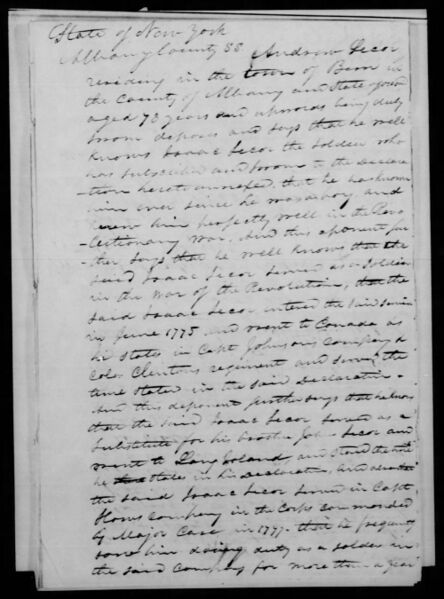 State of New York
Albany County SS Andrew Secor
residing in the town of Bern in
the County of Albany and State
aged 73 years and upwards being duly
sworn deposes and says that he well
knows Isaac Secor the soldier who
has subscribed and sworn to the Declara
-tion hereto annexed, that he has known
him ever since he was a boy and
knew him perfectly well in the Revo
-lutionary War. And this deponent fur
ther says that he well knows that the
said Isaac Secor served as a soldier
in the War of the Revolution, that the
said Isaac Secor entered the said service
in June 1775 and went to Canada as
he states in Capt Johnsons Company &
Cols Clintons regiment and served the
time stated in the said Declaration
And this deponent further says that he knows
that the said Isaac Secor served as a
substitute for his brother Secor and
went to Long Island and the
he states in his Declaration, And
the said Isaac Secor served in Capt
Company in the Corps commanded
by Major Case in 1777. that he frequently
saw him doing duty as a soldier in
the said Company for more than a year